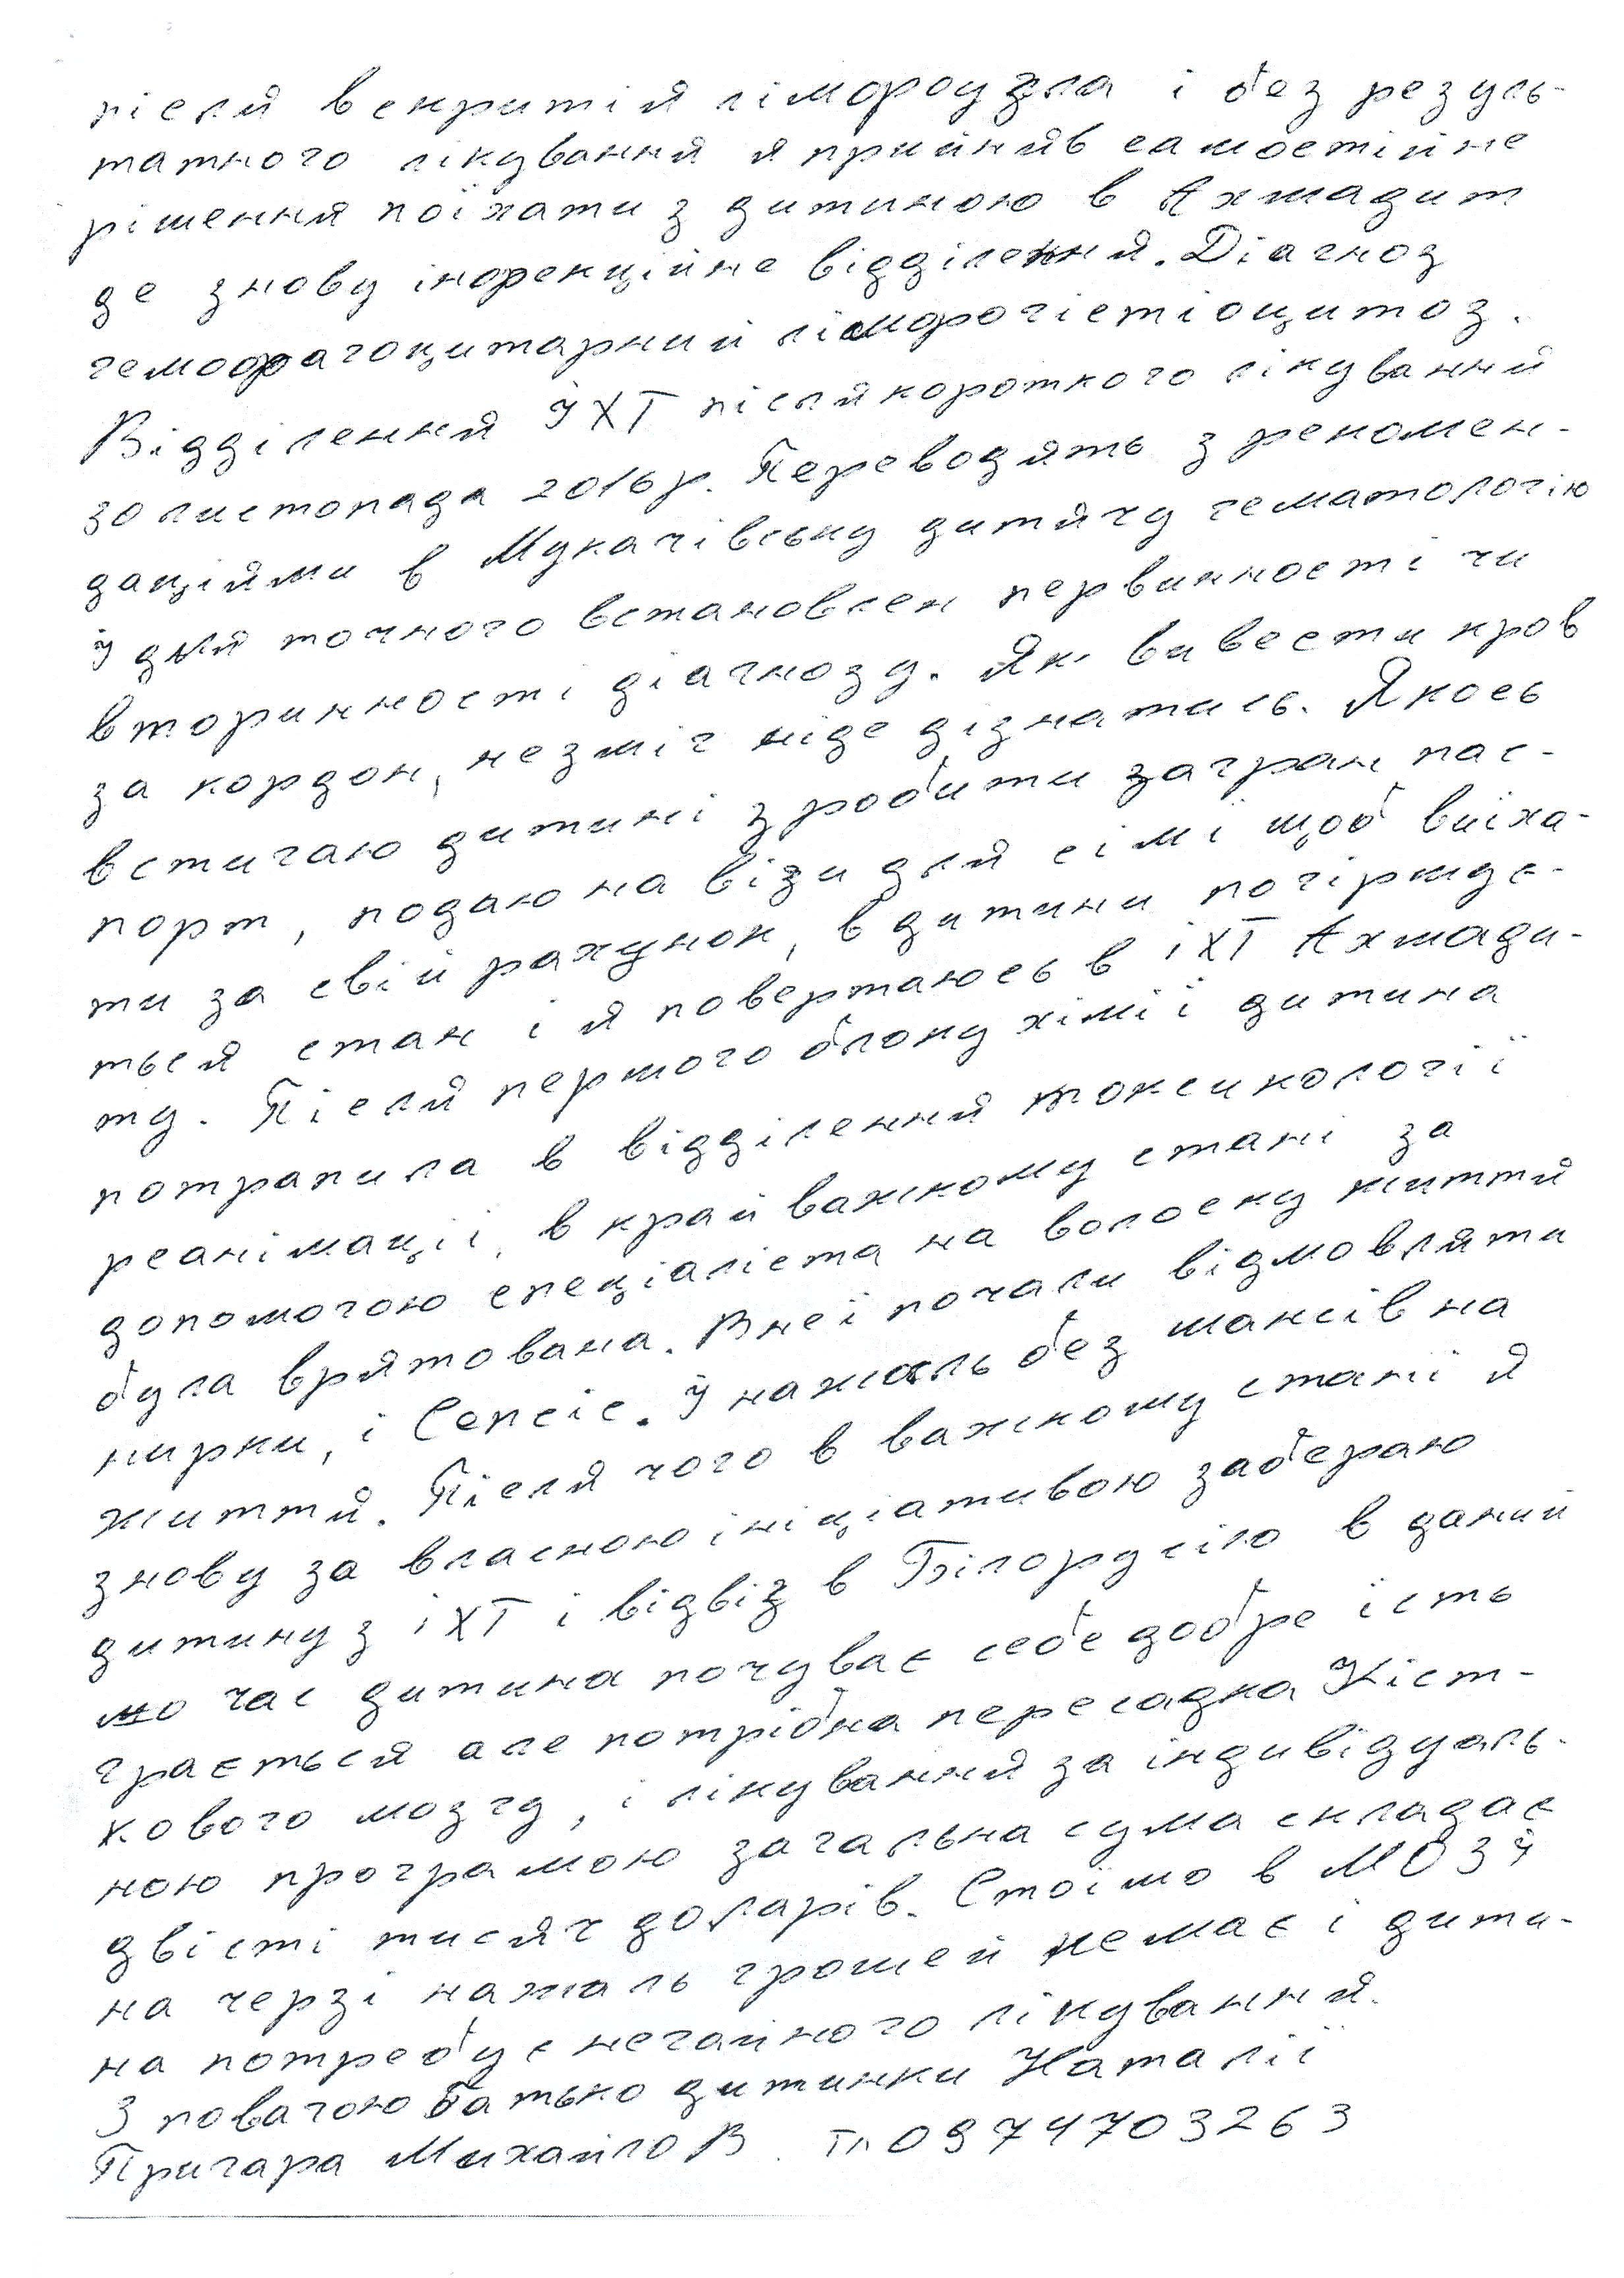 після вскритія лімфоузла і без резуль-
татного лікування я прийняв самостійне
рішення поїхати з дитиною в Ахмадит
де знову інфекційне відділення. Діагноз
гемофагоцитарний лімфогістіоцитоз.
Відділення ІХТ після короткого лікування
30 листопада 2016 р. Переводять з рекомен-
даціями в Мукачівську дитячу гематологію
І для точного встановлен первинності чи
вторинності діагнозу. Як вивести кров
за кордон, незміг ніде дізнатись. Якось
встигаю дитині зробити загран пас-
порт, подаю на візи для сімї щоб виїха-
ти за свій рахунок, в дитини погіршує-
ться стан і я повертаюсь в ІХТ Ахмади-
ту. Після першого блоку хімії дитина
потрапила в відділення токсикології
реанімації, в край важкому стані за
допомогою спеціаліста на волоску життя
була врятована. В неї почали відмовляти
нирки, і Сепсіс. І нажаль без шансів на
життя. Після чого в важкому стані я
знову за власною ініціативою заберaю
дитину з ІХТ і відвіз в Білорусію в даний
мо час дитина почуває себе добре їсть
грається але потрібна пересадка Кіст-
кового мозгу, і лікування за індивідуаль-
ною програмою загальна сума складає
двісті тисяч доларів. Стоїмо в МОЗУ
на черзі нажаль грошей немає і дити-
на потребує негайного лікування.
З повагою батько дитинки Наталії
Пригара Михайло В. тл 0974703263